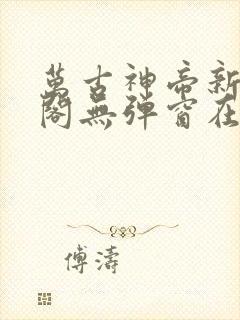 萬古神帝新
閣無彈窗在
傅濤